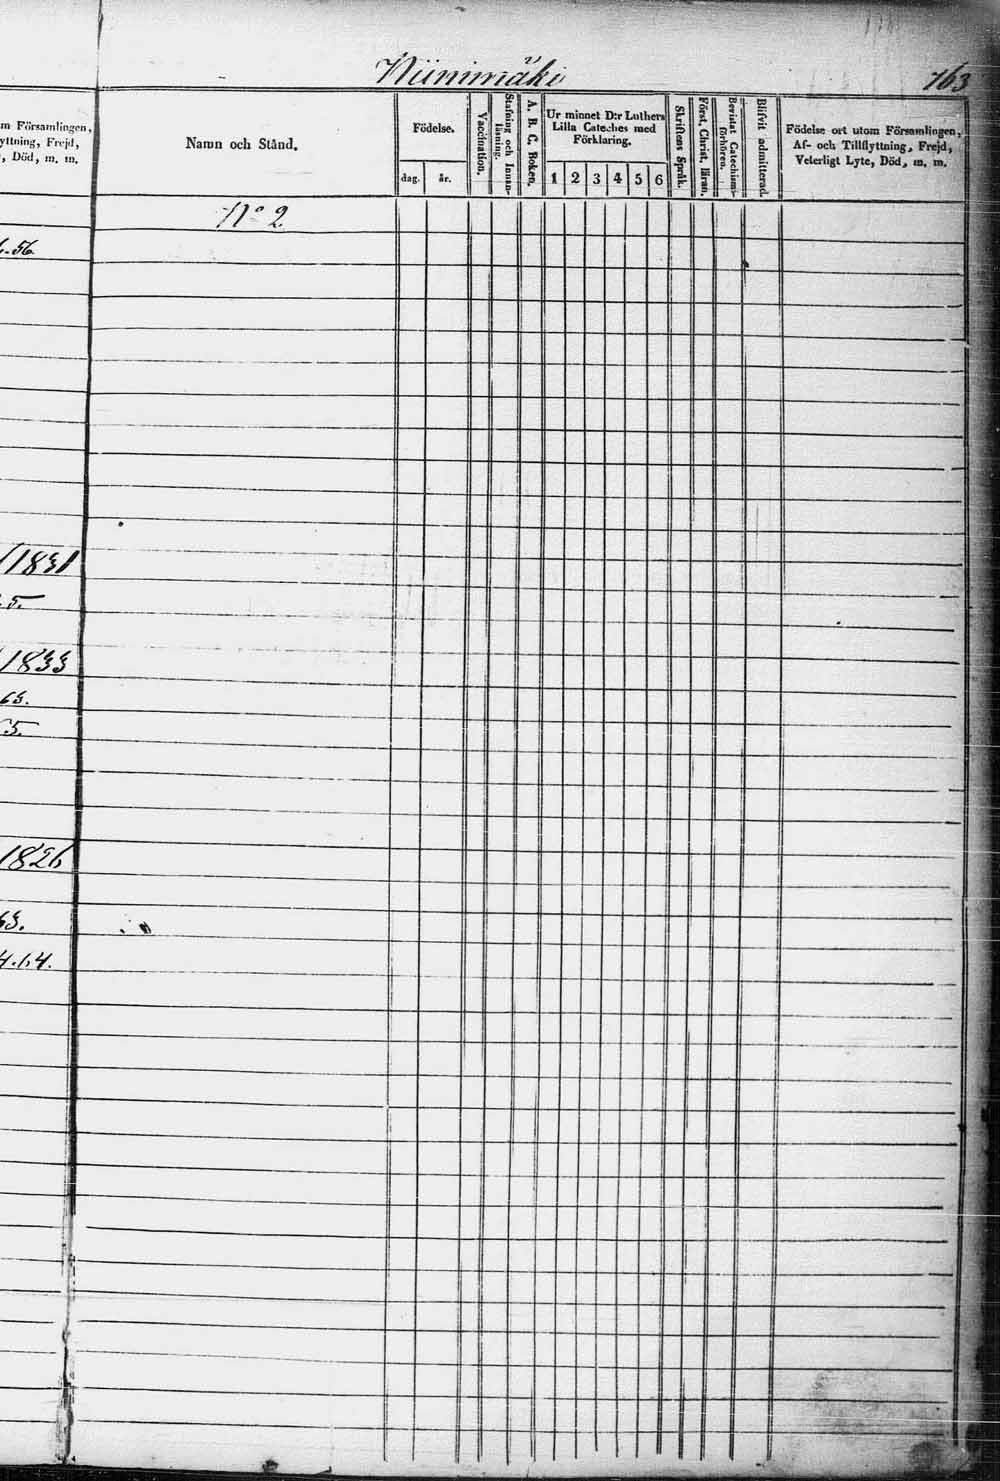 Niinimäki
763
m Församlingen,
yttning, Frejd,
, Död, m. m.
Namn och Stånd.
Födelse.
dag.
år.
Vaccination.
Stafning och Innan-
läsning.
A. B. C. Boken.
Ur minnet D:r Luthers
Lilla Cateches med
Förklaring.
1 2 3 4 5 6
Skriftens Språk.
Först. Christ. läran.
Bevistat Catechismi-
förhören.
Blifvit admitterad.
Födelse ort utom Församlingen,
Af- och Tillflyttning, Frejd,
Veterligt Lyte, Död, m. m.
No 2
.56.
1831
.5.
1833
63.
5.
1826
63.
4.64.